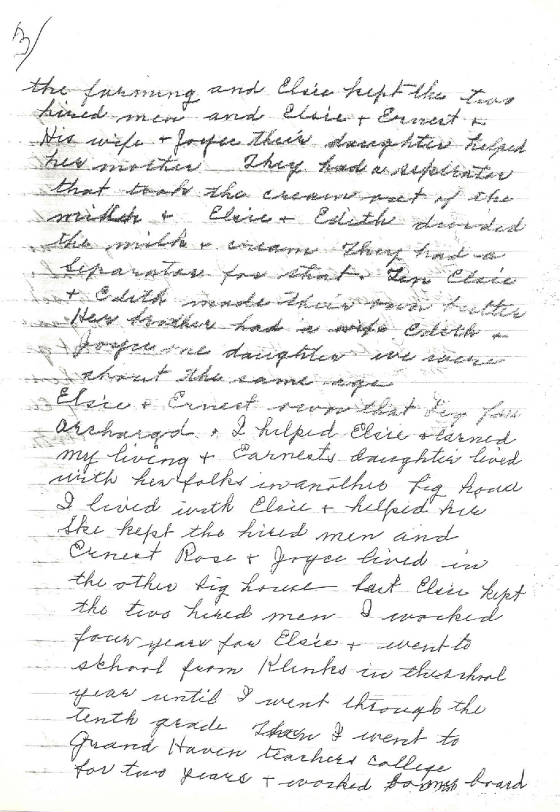 3/
the farming and Elsie kept the two
hired men and Elsie + Ernest +
His wife + Joyce their daughter helped
her mother They had a seperater
that took the cream out of the
milk + Elsie + Edith divided
the milk + cream They had a
Separator for that. Elsie
+ Edith made their own butter
Her brother had a wife Edith +
Joyce one daughter we were
about the same age
Elsie + Ernest that big
archargd + I helped Elsie + earned
my living + Earnests daughter lived
with her folks in another big house
I lived with Elsie + helped her
She kept the hired men and
Ernest Rose + Joyce lived in
the other big house but Elsie kept
the two hired men I worked
four years for Elsie + went to
school from Klinks in the school
year until I went through the
tenth grade Then I went to
Grand Haven teachers college
for two years + worked board